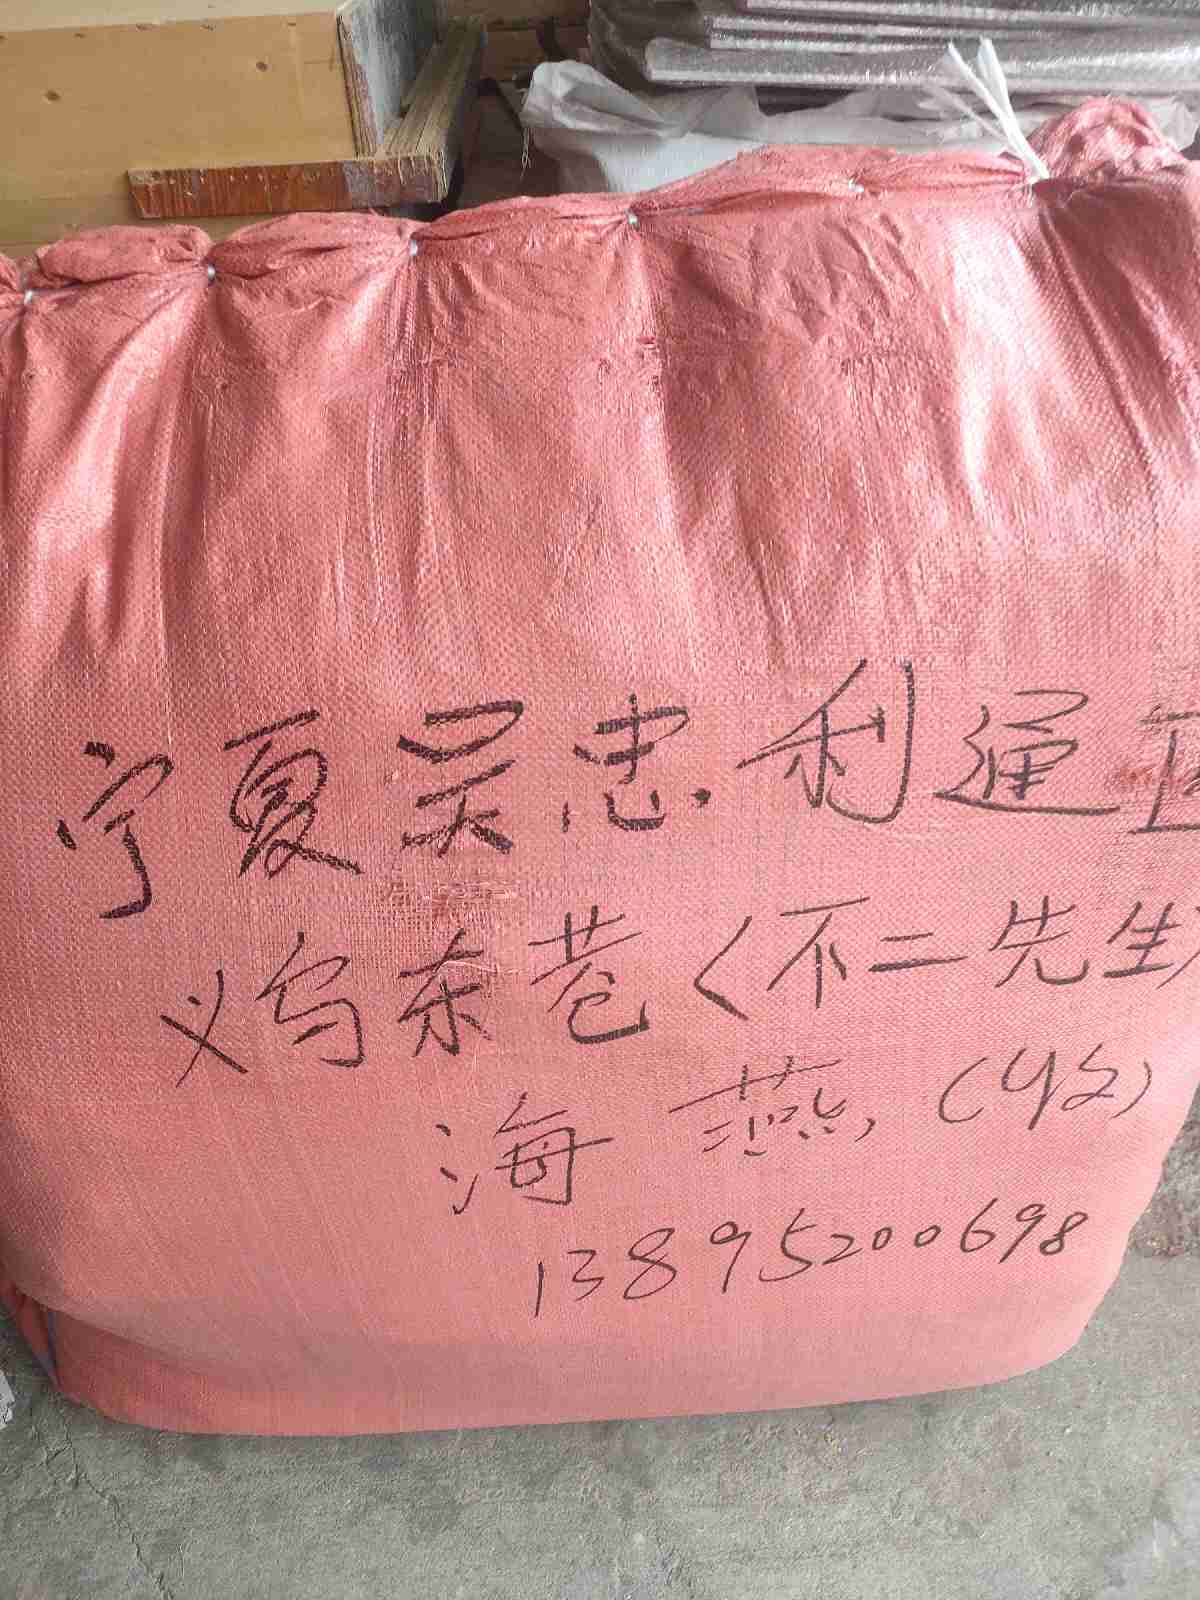 宁夏吴忠.利通区
义乌东巷<不二先生
海燕,(收)
13895200698